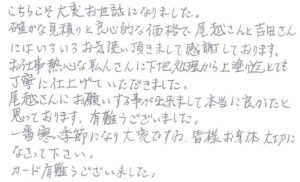 こちらこそ大変お世話になりました。
確かな見積りと良心的な価格で尾越さんと吉田さん
にはいろいろお気遣い頂きまして感謝しております。
お仕事熱心な さんに下地処理から上塗迄とても
丁寧に仕上げていただきました。
尾越さんにお願いする事が出来まして本当に良かったと
思っております。有難うございました。
一番寒い季節になり大変ですね、皆様お身体大切に
なさって下さい。
カード有難うございました。